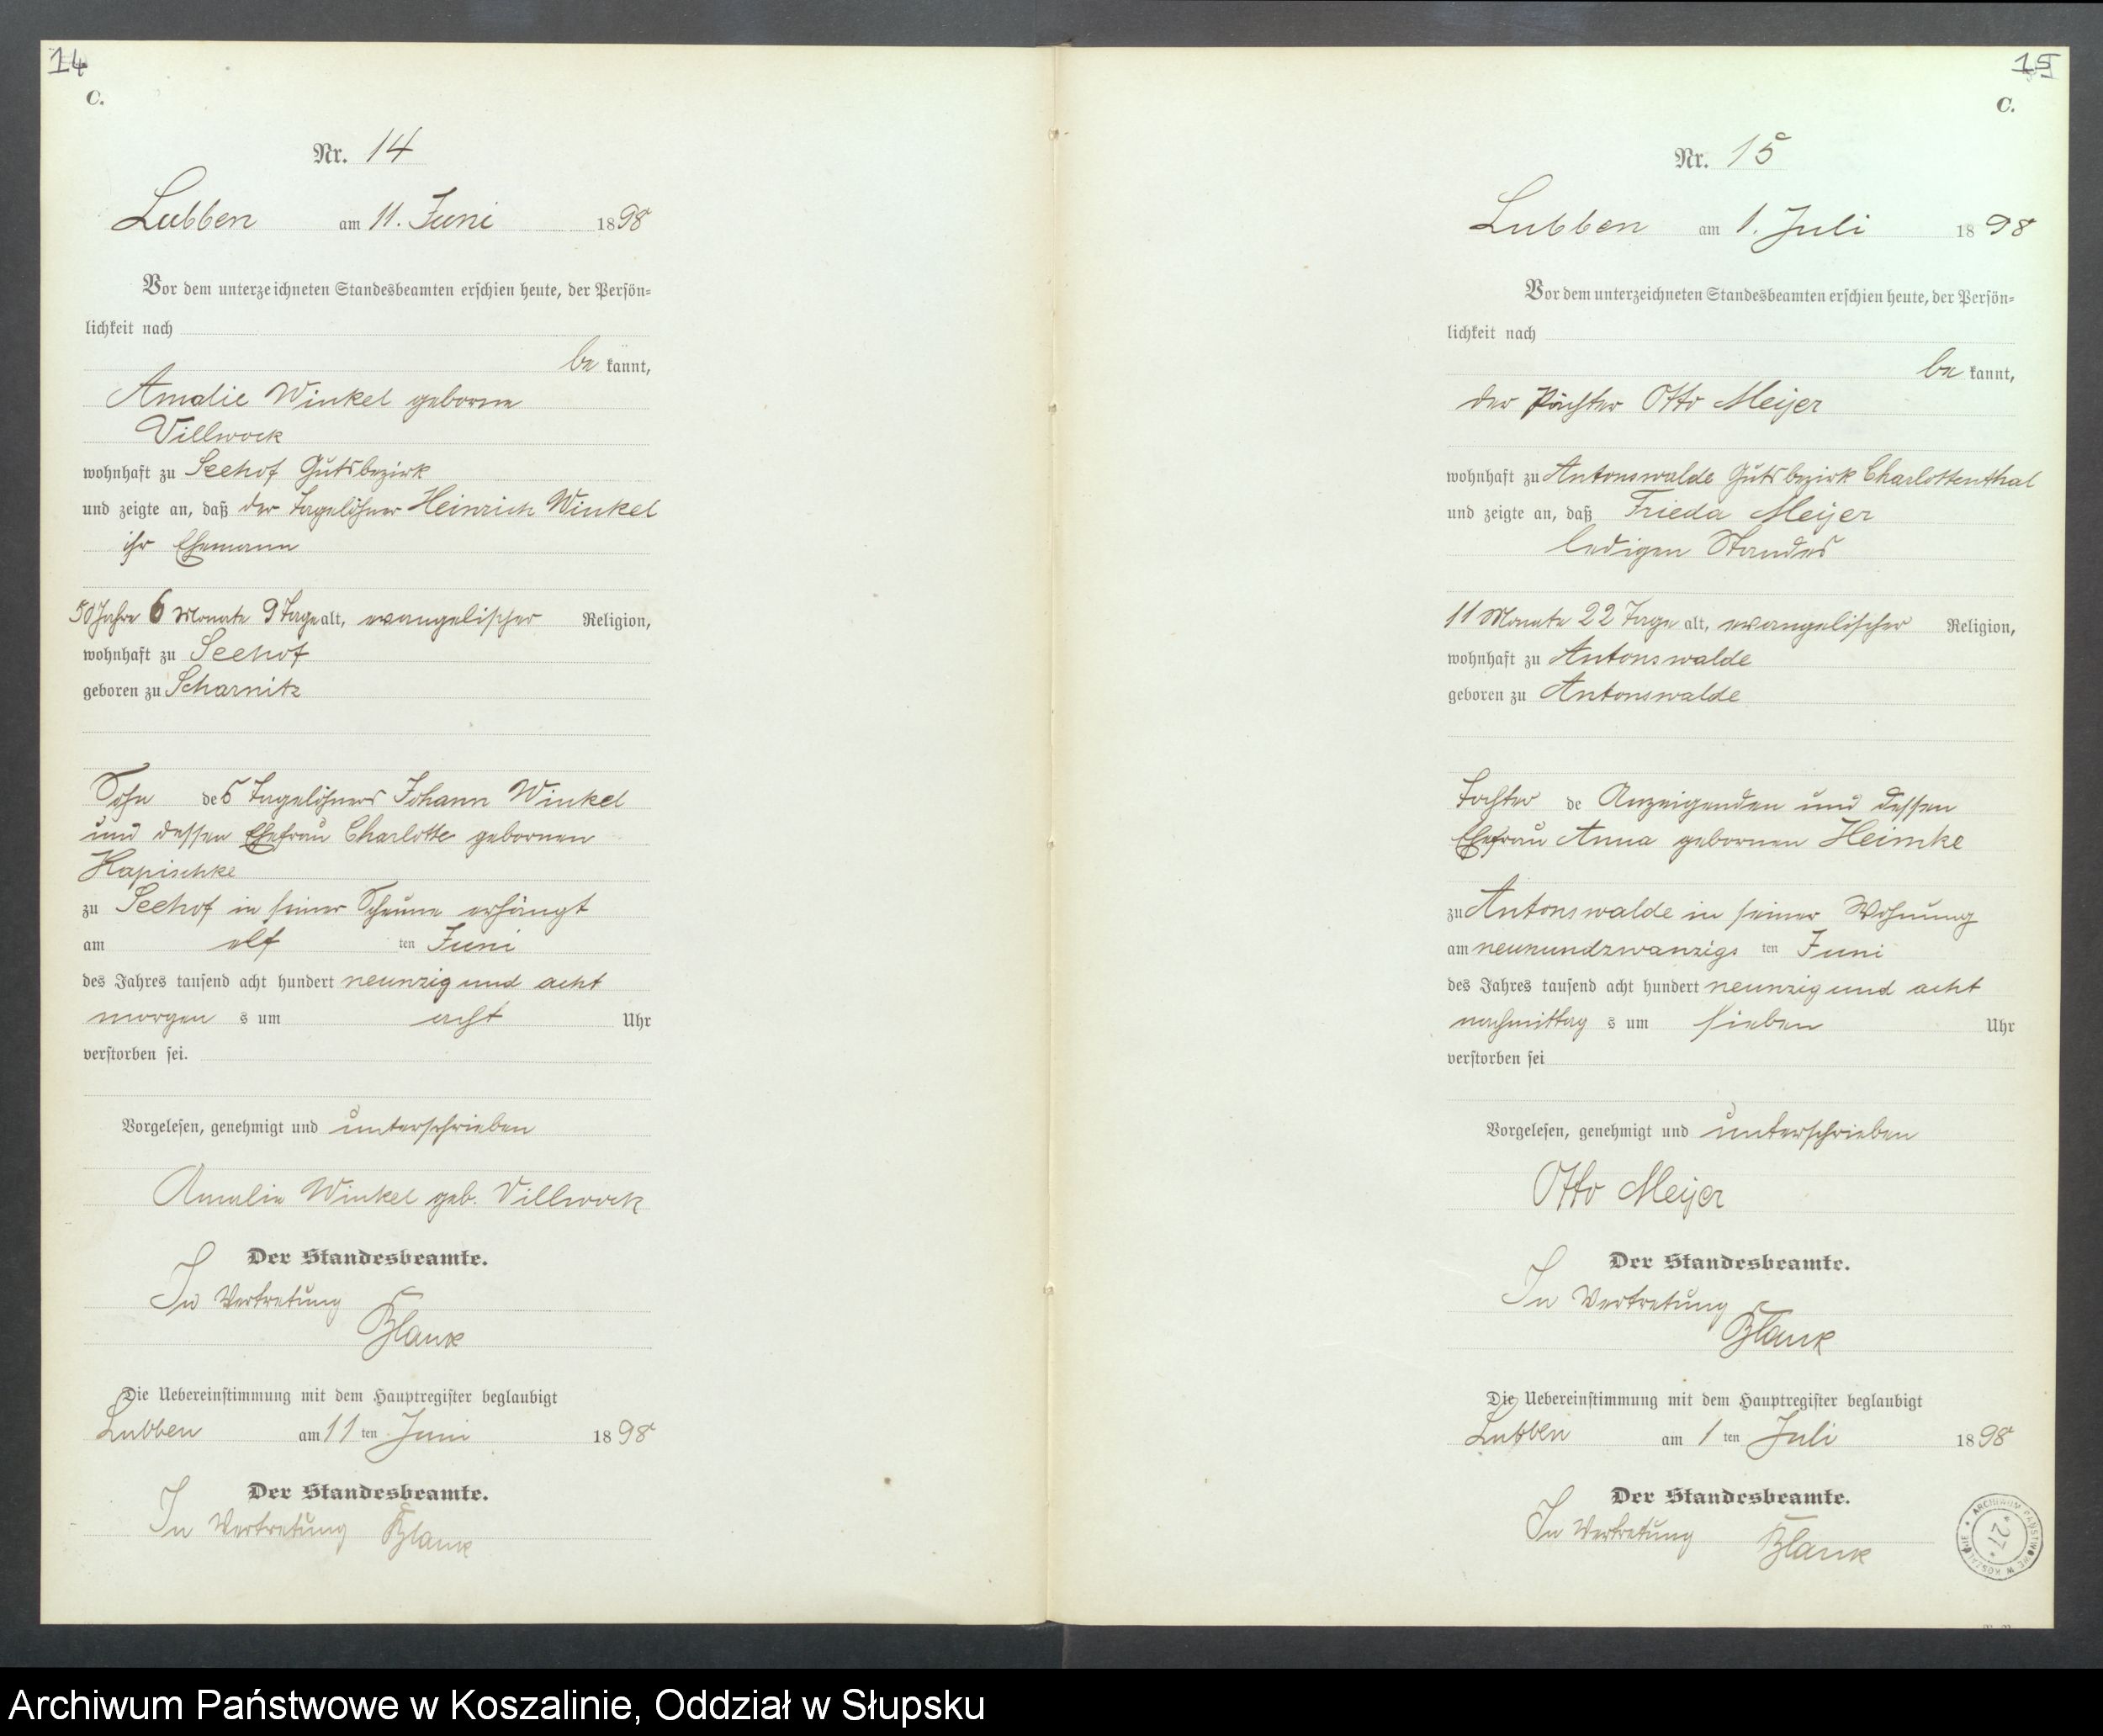 14
C.
Nr. 14
Lubben am 11. Juni 1898
Vor dem unterzeichneten Standesbeamten erschien heute, der Persön=
lichkeit nach
be kannt,
Amalie Winkel geborne
Villwock
wohnhaft zu Seehof Gutsbezirk
und zeigte an, daß der Tagelöhner Heinrich Winkel
ihr Ehemann
50 Jahre 6 Monate 9 Tage alt, evangelischer Religion,
wohnhaft zu Seehof
geboren zu Scharnitz
Sohn des Tagelöhners Johann Winkel
und dessen Ehefrau Charlotte gebornen
Hapischke
zu Seehof in seiner Scheune erhängt
am elf ten Juni
des Jahres tausend acht hundert neunzig und acht
morgen s um acht Uhr
verstorben sei.
Vorgelesen, genehmigt und unterschrieben
Amalie Winkel geb. Villwock
Der Standesbeamte.
In Vertretung
Blank
Die Uebereinstimmung mit dem Hauptregister beglaubigt
Lubben am 11 ten Juni 1898
Der Standesbeamte.
In Vertretung Blank
15
C.
Nr. 15
Lubben am 1. Juli 1898
Vor dem unterzeichneten Standesbeamten erschien heute, der Persön=
lichkeit nach
be kannt,
der Pächter Otto Meijer
wohnhaft zu Antonswalde Gutsbezirk Charlottenthal
und zeigte an, daß Frieda Meijer
ledigen Standes
11 Monate 22 Tage alt, evangelischer Religion,
wohnhaft zu Antonswalde
geboren zu Antonswalde
Tochter de Anzeigenden und dessen
Ehefrau Anna gebornen Heimke
zu Antonswalde in seiner Wohnung
am neunundzwanzigs ten Juni
des Jahres tausend acht hundert neunzig und acht
nachmittag s um sieben Uhr
verstorben sei
Vorgelesen, genehmigt und unterschrieben
Otto Meijer
Der Standesbeamte.
In Vertretung
Blank
Die Uebereinstimmung mit dem Hauptregister beglaubigt
Lubben am 1 ten Juli 1898
Der Standesbeamte.
In Vertretung Blank
ARCHIWUM PAŃSTWOWE W KOSZALINIE
* 27 *
Archiwum Państwowe w Koszalinie, Oddział w Słupsku